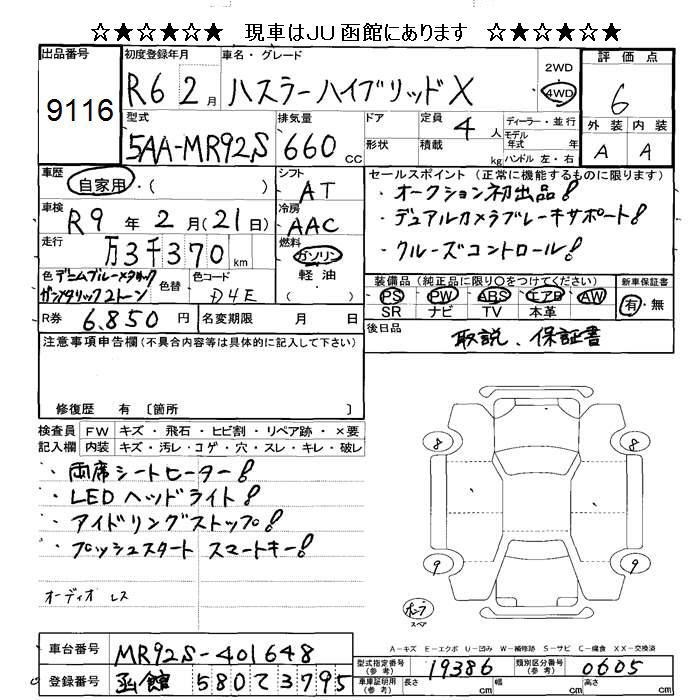 ☆★☆★☆★ 現車はJU函館にあります ☆★☆★☆★
出品番号 9116
初度登録年月 R6 2月
車名・グレード ハスラーハイブリッドX
2WD 4WD
評価点 6
外装 A 内装 A
型式 5AA-MR92S
排気量 660 CC
ドア 形状
定員 4人
積載 kg
ディーラー・並行
モデル年式 年式
ハンドル 左・右
車歴 自家用・( )
シフト AT
セールスポイント (正常に機能するものに限ります)
・オークション初出品!
・デュアルカメラブレーキサポート!
・クルーズコントロール!
車検 R9年2月(21日)
冷房 AAC
走行 万3千370km
燃料 ガソリン 軽油 ( )
色 デニムブルーメタリック
ガンメタリック2トーン
色替
色コード D4E
装備品 (純正品に限り〇をつけてください) 新車保証書
PS PW ABS エアB AW 有・無
SR ナビ TV 本革
R券 6,850円 名変期限 月 日
後日品 取説、保証書
注意事項申告欄(不具合内容等は具体的に記入して下さい)
修復歴 有 〔箇所 〕
検査員記入欄
FW キズ・飛石・ヒビ割・リペア跡・×要
内装 キズ・汚レ・コゲ・穴・スレ・キレ・破レ
・両席シートヒーター!
・LEDヘッドライト!
・アイドリングストップ!
・プッシュスタート スマートキー!
オーディオ レス
8 8
9 9
スペア
A-キズ E-エクボ U-凹み W-補修跡 S-サビ C-腐食 XX-交換済
車台番号 MR92S-401648
登録番号 函館 580 て 3795
型式指定番号(参考) 19386
類別区分番号(参考) 0605
車庫証明用(参考) 長さ cm 幅 cm 高さ cm